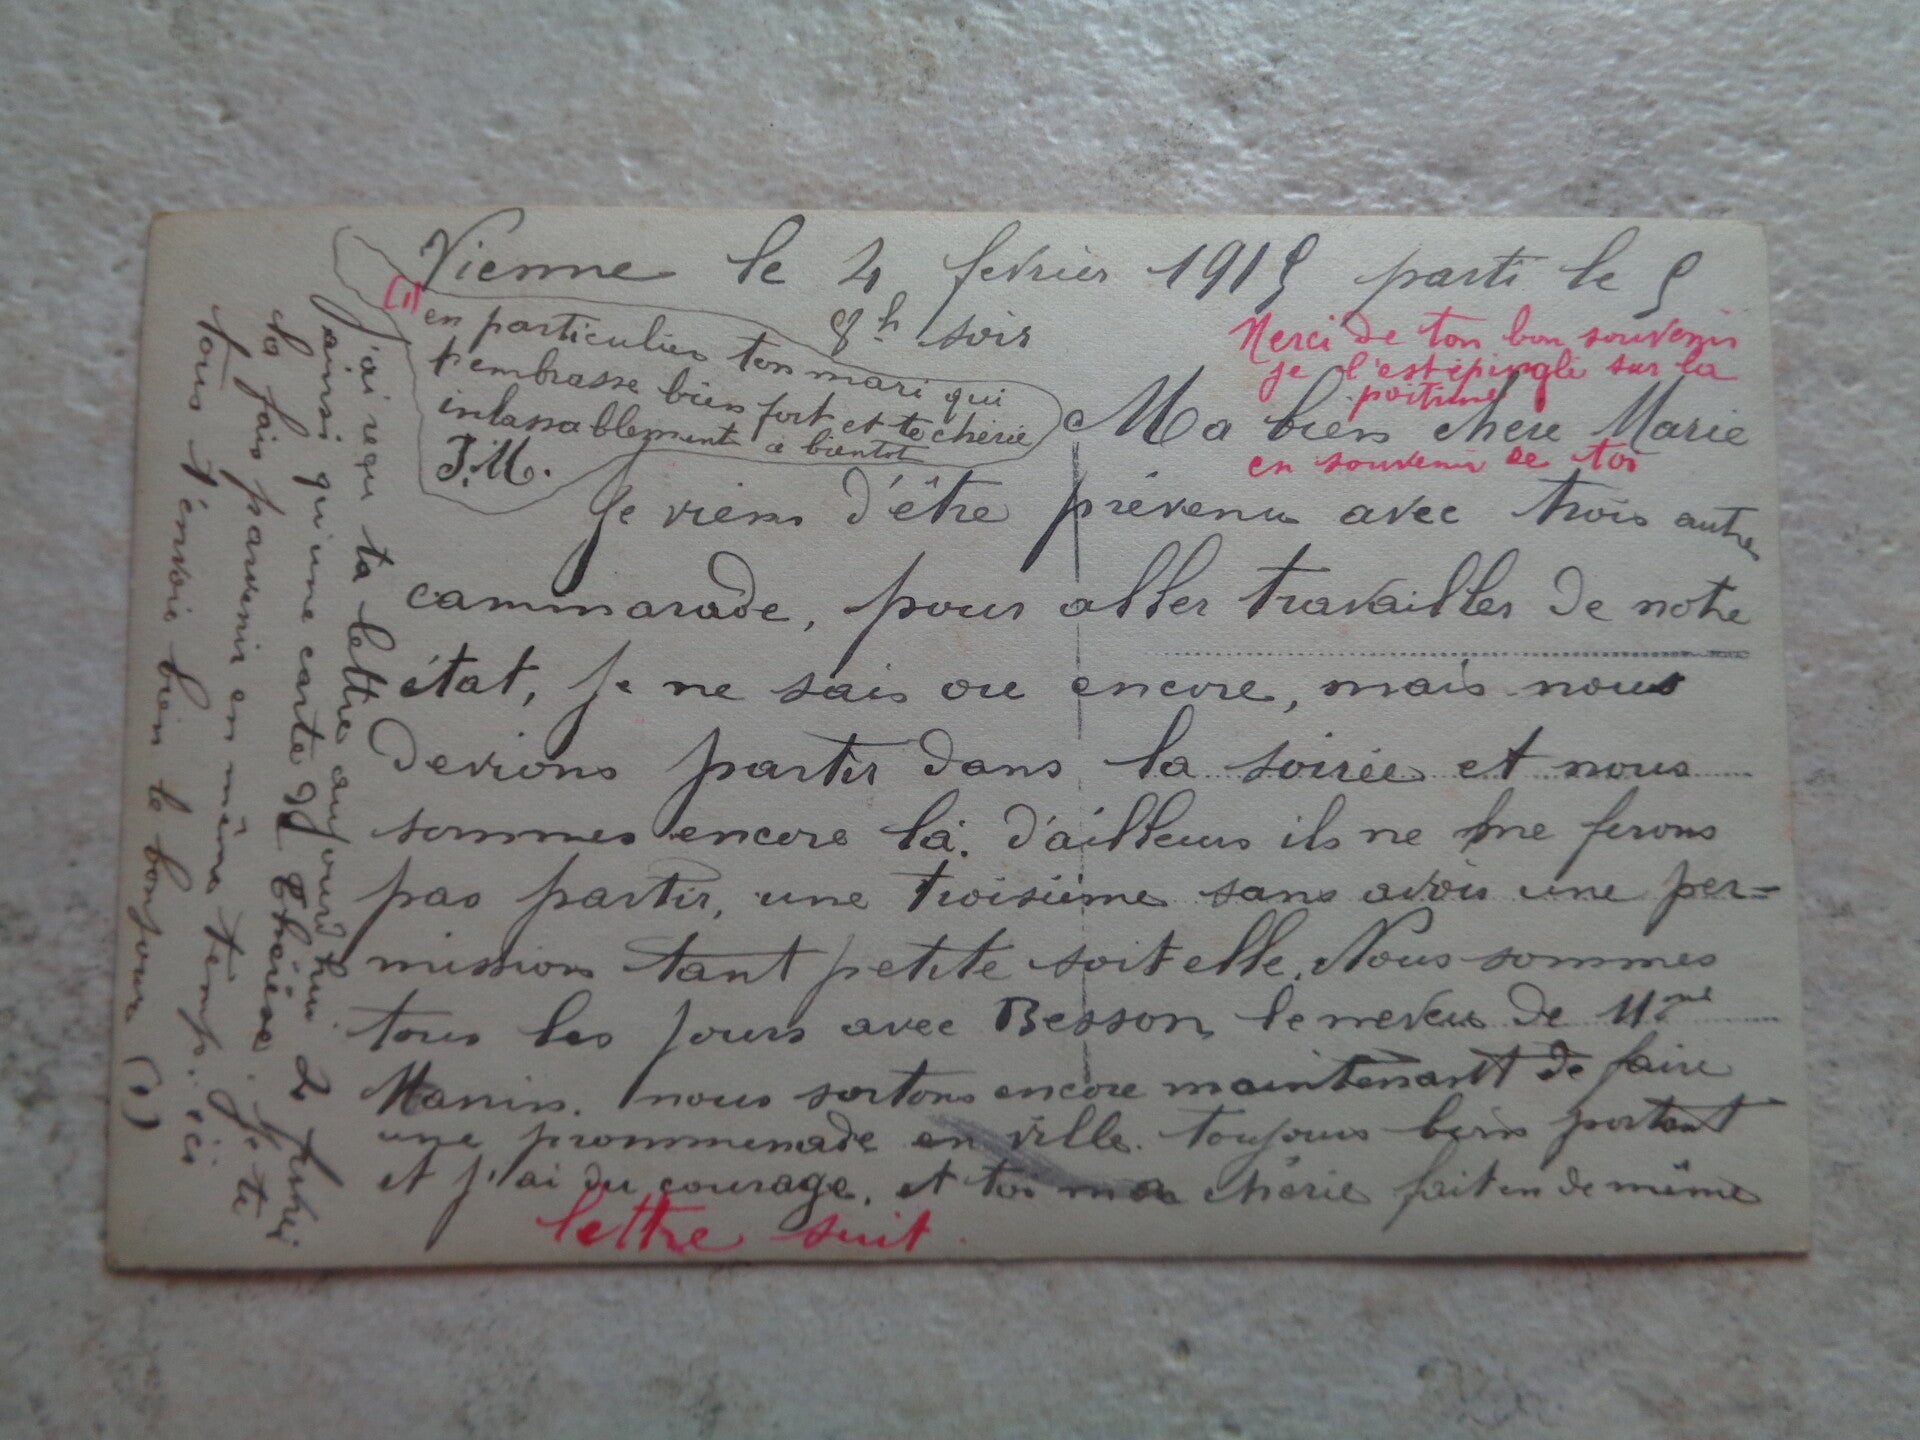 Vienne le 4 fevrier 1915 parti le 5
8h soir
Merci de ton bon souvenir
je l'est épinglé sur la
poitrine
en souvenir de toi
Ma bien chere Marie
Je viens d'être prévenu avec trois autre
cammarade, pour aller travailler de notre
état, je ne sais ou encore, mais nous
devions partir dans la soirée et nous
sommes encore là. d'ailleurs ils ne me ferons
pas partir, une troisième sans avoir une per=
mission tant petite soit elle. Nous sommes
tous les jours avec Besson, le neveu de Mme
Manin. nous sortons encore maintenant de faire
une prommenade en ville. toujours bien portant
et j'ai du courage, et toi ma chérie fait en de même
lettre suit.
j'ai reçu ta lettre aujourd'hui
ainsi qu'une carte de Thérèse
la fais parvenir en même temps. ici
tous t'envoie bien le bonjour (1)
(1)
en particulier ton mari qui
t'embrasse bien fort et te chérie
inlassablement a bientot
J.M.